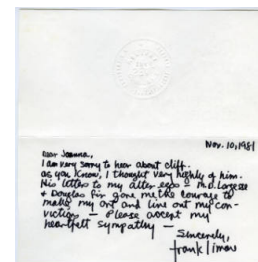 Nov. 10, 1981
Dear Joanna,
I am very sorry to hear about Cliff.
As you know, I thought very highly of him.
His letters to my alter egos — M.D. Largesse
& Douglas Fir gave me the courage to
make my art and live out my con-
victions — Please accept my
heartfelt sympathy —
Sincerely,